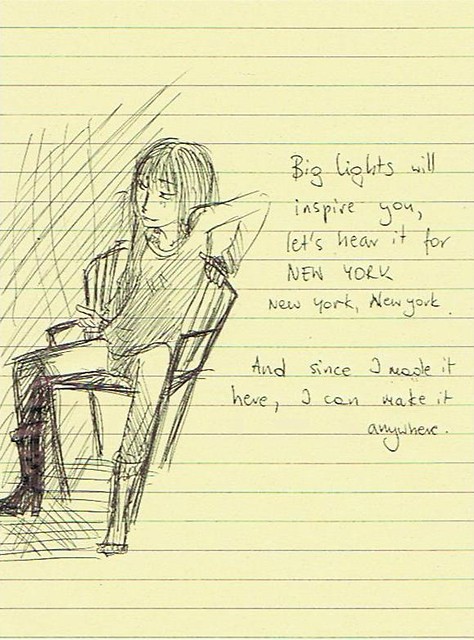 Big lights will
inspire you,
let's hear it for
NEW YORK
New York, New York.
And since I made it
here, I can make it
anywhere.